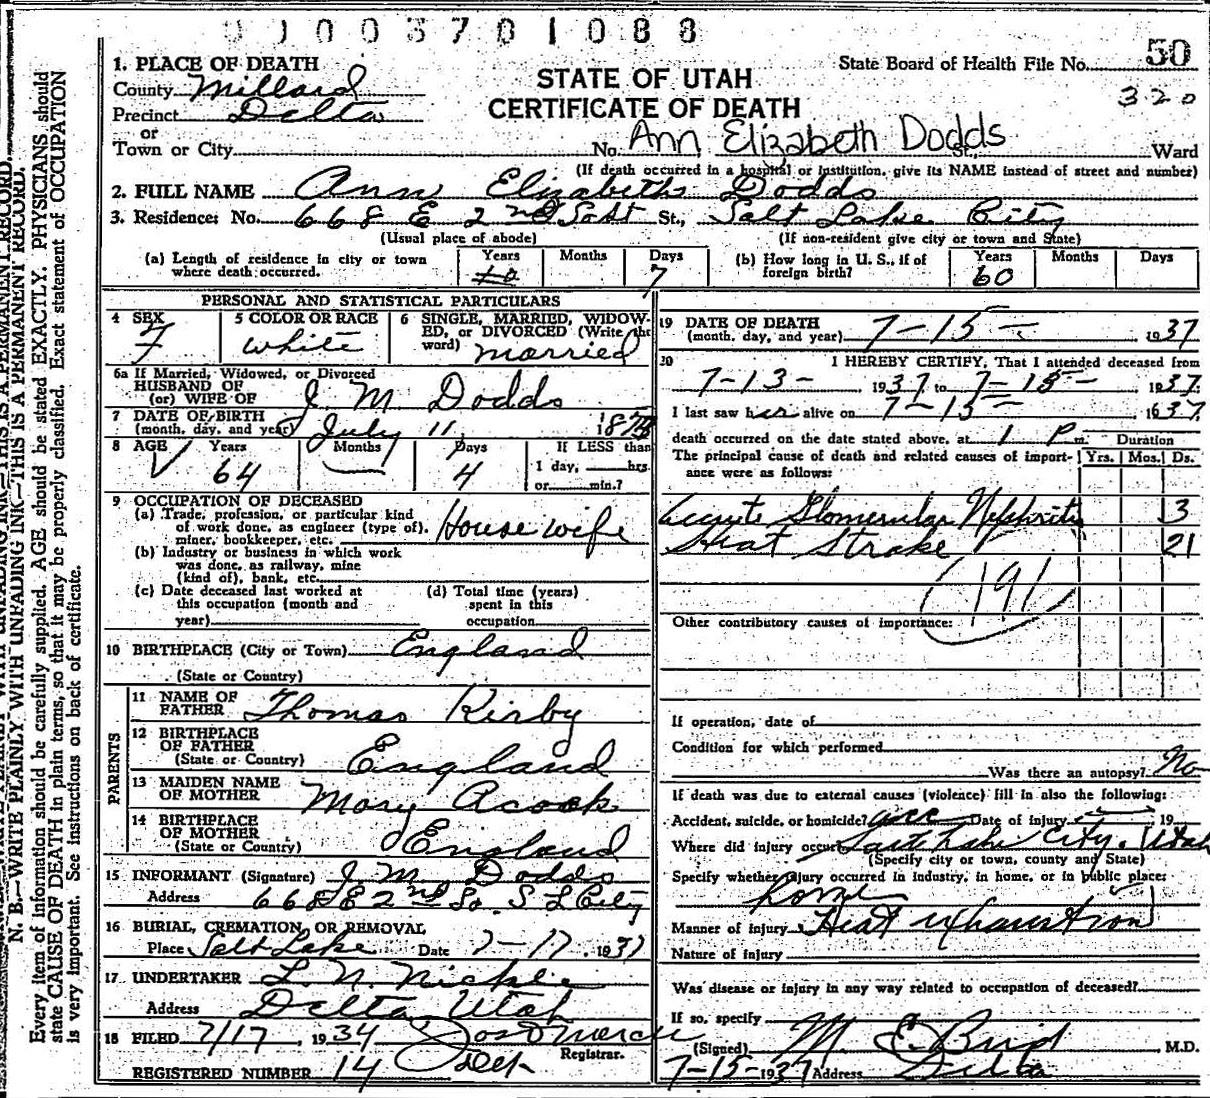 0 1 0 0 3 7 0 1 0 8 8
50
State Board of Health File No.
320
STATE OF UTAH
CERTIFICATE OF DEATH
1. PLACE OF DEATH
County Millard
Precinct Delta
or
Town or City No. Ann Elizabeth Dodds St., Ward
(If death occurred in a hospital or institution, give its NAME instead of street and number)
2. FULL NAME Ann Elizabeth Dodds
3. Residence: No. 668 E 2nd South St., Salt Lake City
(Usual place of abode) (If non-resident give city or town and State)
(a) Length of residence in city or town where death occurred. Years Months Days 7
(b) How long in U. S., if of foreign birth? Years 60 Months Days
PERSONAL AND STATISTICAL PARTICULARS
4 SEX F
5 COLOR OR RACE white
6 SINGLE, MARRIED, WIDOWED, or DIVORCED (Write the word) married
6a If Married, Widowed, or Divorced
HUSBAND OF
(or) WIFE OF J M Dodds
7 DATE OF BIRTH
(month, day, and year) July 11 1873
8 AGE Years 64 Months Days 4 If LESS than
1 day, hrs.
or min.?
9 OCCUPATION OF DECEASED
(a) Trade, profession, or particular kind
of work done, as engineer (type of),
miner, bookkeeper, etc. House wife
(b) Industry or business in which work
was done, as railway, mine
(kind of), bank, etc.
(c) Date deceased last worked at
this occupation (month and
year)
(d) Total time (years)
spent in this
occupation
10 BIRTHPLACE (City or Town) England
(State or Country)
PARENTS
11 NAME OF
FATHER Thomas Kirby
12 BIRTHPLACE
OF FATHER
(State or Country) England
13 MAIDEN NAME
OF MOTHER Mary Acock
14 BIRTHPLACE
OF MOTHER
(State or Country) England
15 INFORMANT (Signature) J M Dodds
Address 668 E 2nd So. S L City
16 BURIAL, CREMATION, OR REMOVAL
Place Salt Lake Date 7-17, 1937
17 UNDERTAKER L. N. Nickle
Address Delta Utah
18 FILED 7/17, 1934
Registrar.
REGISTERED NUMBER 14
19 DATE OF DEATH
(month, day, and year) 7-15- 1937
20 I HEREBY CERTIFY, That I attended deceased from
7-13- 1937 to 7-15- 1937
I last saw her alive on 7-15- 1937
death occurred on the date stated above, at 1 P m. Duration
The principal cause of death and related causes of importance were as follows: Yrs. Mos. Ds.
Accute Glomerular Nephritis 3
Heat Stroke 21
191
Other contributory causes of importance:
If operation, date of
Condition for which performed
Was there an autopsy? No
If death was due to external causes (violence) fill in also the following:
Accident, suicide, or homicide? acc Date of injury 19
Where did injury occur Salt Lake City, Utah
(Specify city or town, county and State)
Specify whether injury occurred in industry, in home, or in public place:
home
Manner of injury Heat exhaustion
Nature of injury
Was disease or injury in any way related to occupation of deceased?
If so, specify
(Signed) M. E. Bird M.D.
7-15-1937 Address Delta
N. B.—WRITE PLAINLY WITH UNFADING INK—THIS IS A PERMANENT RECORD.
Every item of information should be carefully supplied. AGE should be stated EXACTLY. PHYSICIANS should
state CAUSE OF DEATH in plain terms, so that it may be properly classified. Exact statement of OCCUPATION
is very important. See instructions on back of certificate.